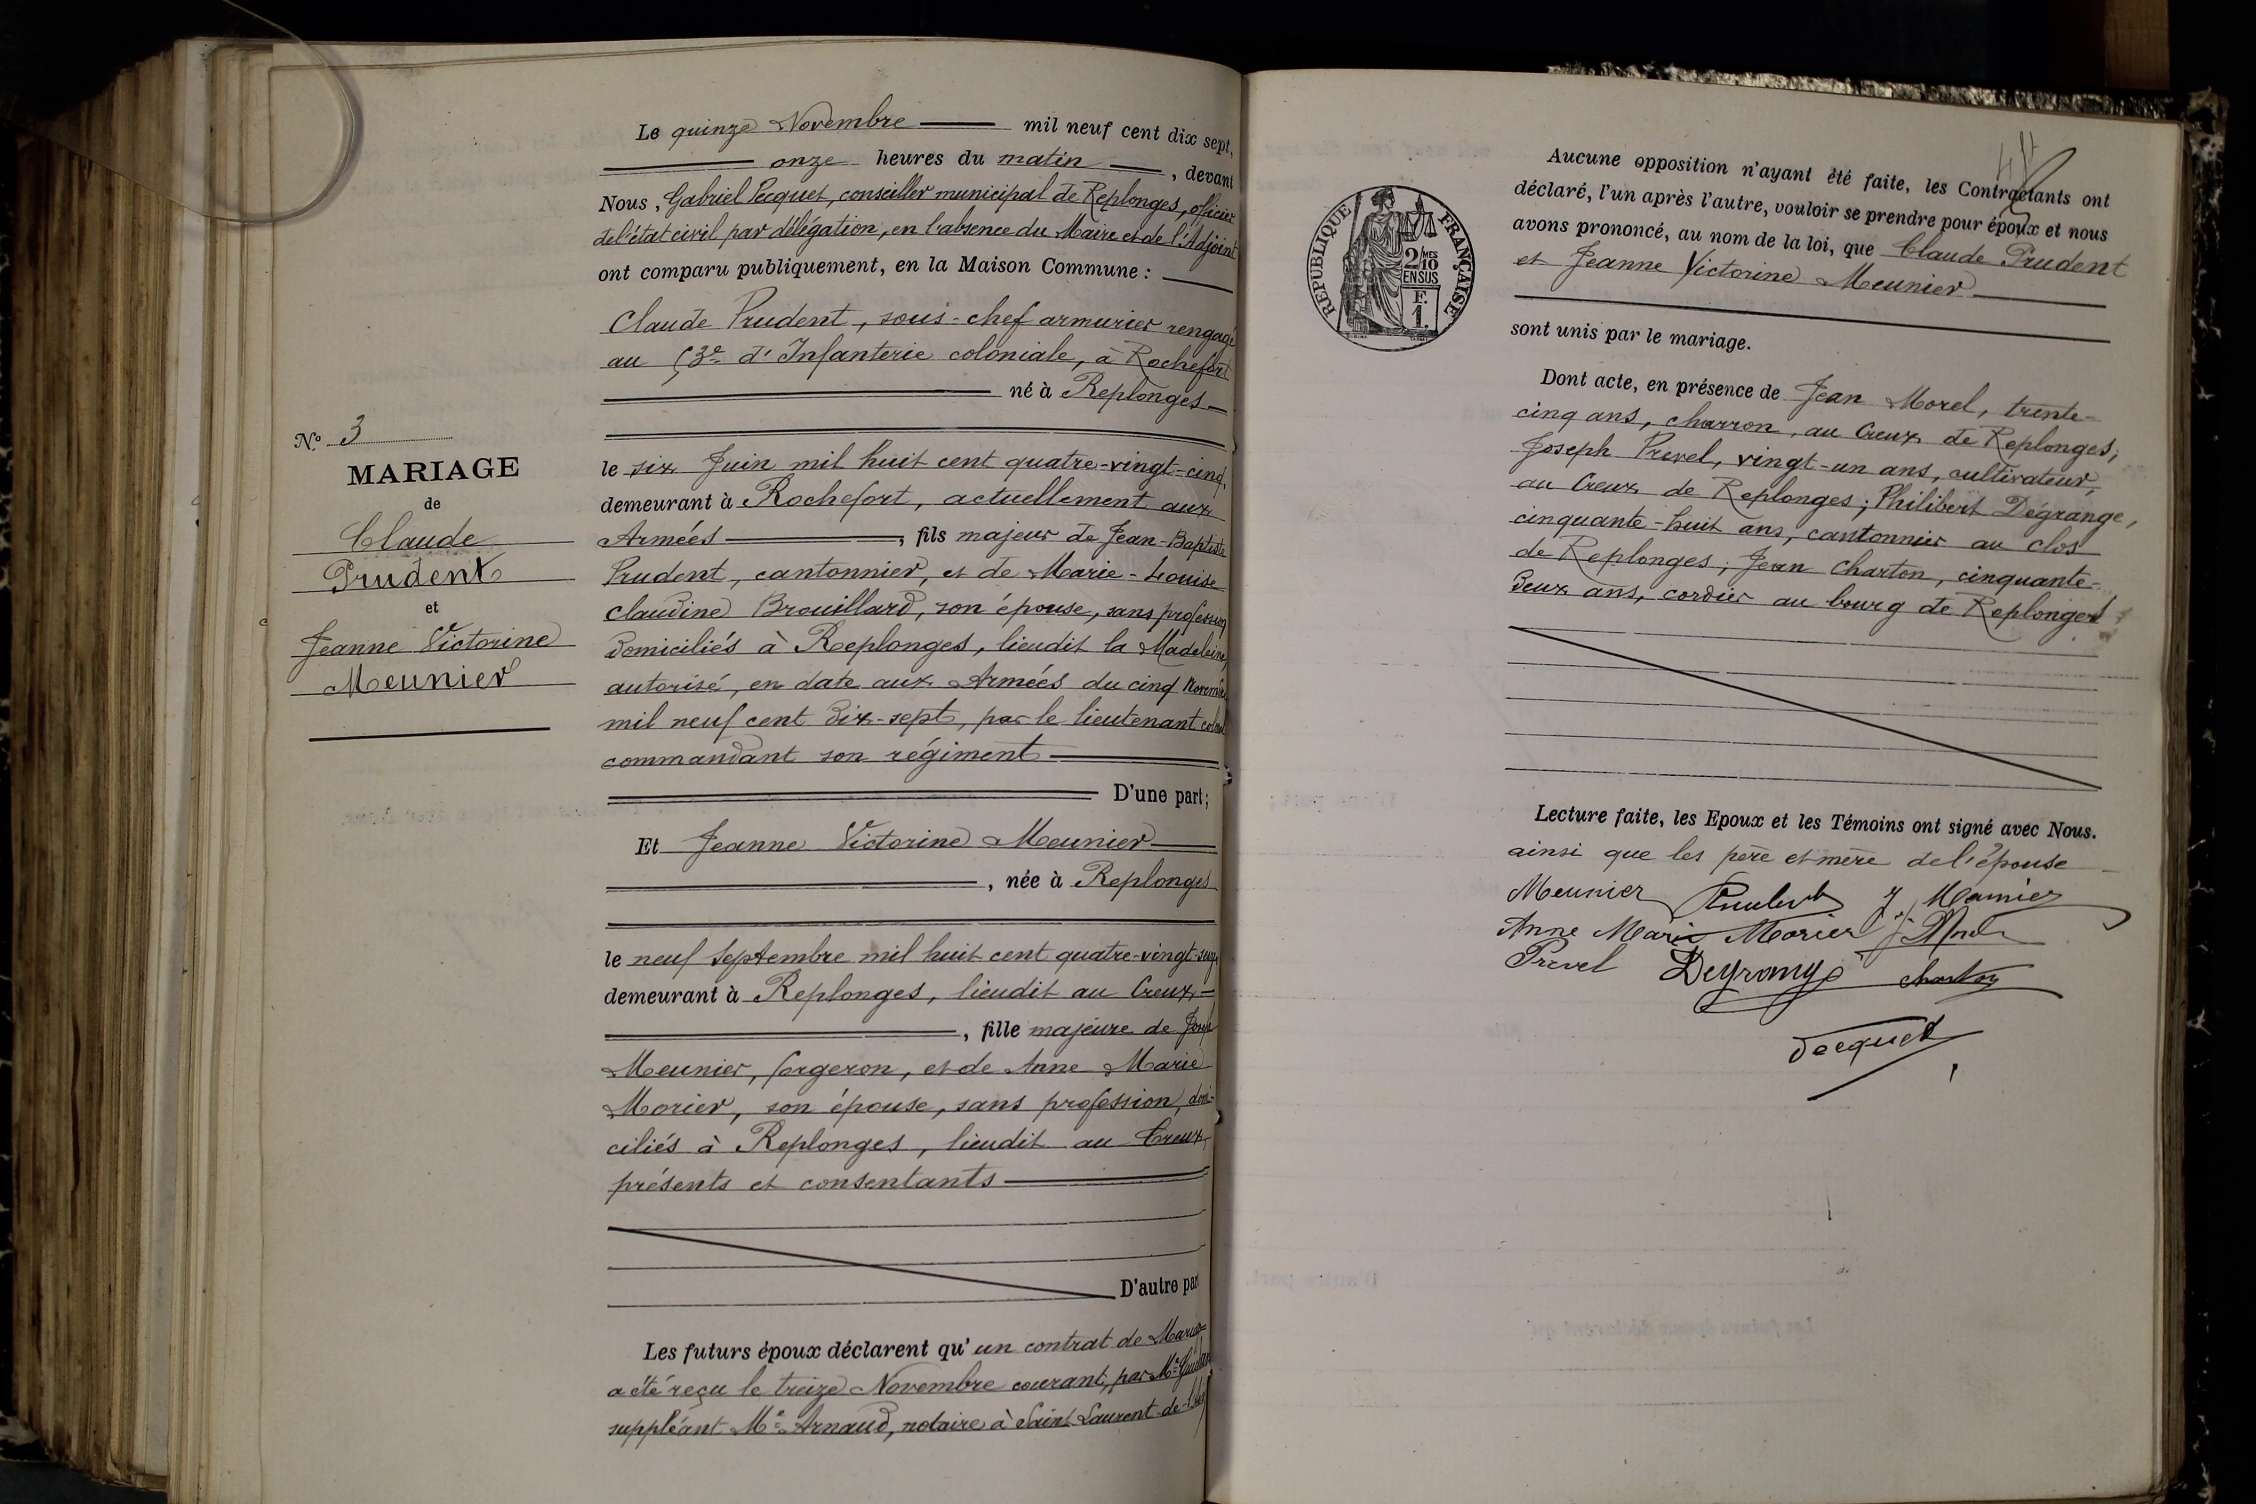 Le quinze Novembre mil neuf cent dix sept,
onze heures du matin, devant
Nous, Gabriel Pecquet, conseiller municipal de Replonges, officier
de l'état civil par délégation, en l'absence du Maire et de l'Adjoint
ont comparu publiquement, en la Maison Commune :
Claude Prudent, sous-chef armurier rengagé
au 53e d'Infanterie coloniale, à Rochefort
né à Replonges
le six Juin mil huit cent quatre-vingt-cinq,
demeurant à Rochefort, actuellement aux
Armées, fils majeur de Jean-Baptiste
Prudent, cantonnier, et de Marie-Louise
Claudine Brouillard, son épouse, sans profession
domiciliés à Replonges, lieudit la Madeleine,
autorisé, en date aux Armées du cinq Novembre
mil neuf cent dix-sept, par le lieutenant colonel
commandant son régiment
D'une part;
Et Jeanne Victorine Meunier
, née à Replonges
le neuf Septembre mil huit cent quatre-vingt-
demeurant à Replonges, lieudit au Creux
, fille majeure de Joseph
Meunier, forgeron, et de Anne Marie
Morier, son épouse, sans profession, domi-
ciliés à Replonges, lieudit au Creux,
présents et consentants
D'autre part
Les futurs époux déclarent qu'un contrat de Mariage
a été reçu le treize Novembre courant, par Me
suppléant Me Arnaud, notaire à Saint Laurent-de-
No 3
MARIAGE
de
Claude
Prudent
et
Jeanne Victorine
Meunier
RÉPUBLIQUE FRANÇAISE
2/10MES
EN SUS
F.
1.
Aucune opposition n'ayant été faite, les Contractants ont
déclaré, l'un après l'autre, vouloir se prendre pour époux et nous
avons prononcé, au nom de la loi, que Claude Prudent
et Jeanne Victorine Meunier
sont unis par le mariage.
Dont acte, en présence de Jean Morel, trente-
cinq ans, charron, au Creux de Replonges;
Joseph Prevel, vingt-un ans, cultivateur,
au Creux de Replonges; Philibert Dégrange,
cinquante-huit ans, cantonnier au clos
de Replonges; Jean Charton, cinquante-
deux ans, cordier au bourg de Replonges
Lecture faite, les Epoux et les Témoins ont signé avec Nous.
ainsi que les père et mère de l'épouse
Meunier Prudent J Meunier
Anne Marie Morier J. Morel
Prevel Degrange Charton
Pecquet